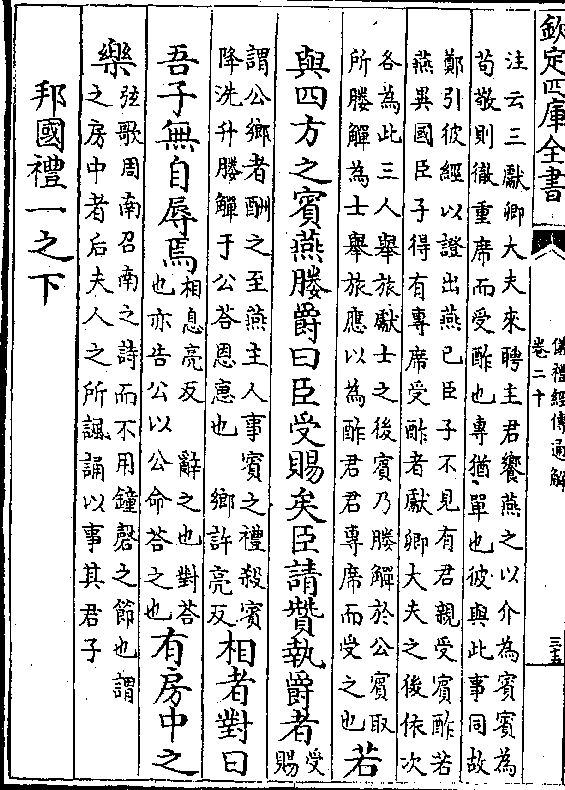 欽定四庫全書
儀禮經傳通解
卷二十
三五
注云三獻卿大夫來聘主君饗燕之以介為賓賓為
苟敬則徹重席而受酢也專猶單也彼與此事同故
鄭引彼經以證出燕已臣子不見有君親受賓酢若
燕異國臣子得有專席受酢者獻卿大夫之後依次
各為此三人舉旅獻士之後賓乃媵觶於公賓取
所媵觶為士舉旅應以為酢君君專席而受之也
若
與四方之賓燕媵爵曰臣受賜矣臣請贊執爵者
受
賜
謂公鄉者酬之至燕主人事賓之禮殺賓
降洗升媵觶于公荅恩惠也 鄉許亮反
相者對曰
吾子無自辱焉
相息亮反 辭之也對荅
也亦告公以公命荅之也
有房中之
樂
弦歌周南召南之詩而不用鐘磬之節也謂
之房中者后夫人之所諷誦以事其君子
邦國禮一之下